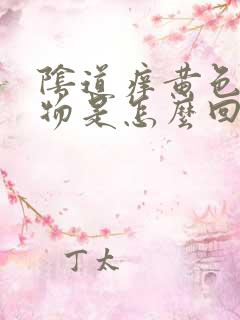 陰道痒黄色
物是怎麼回
丁太